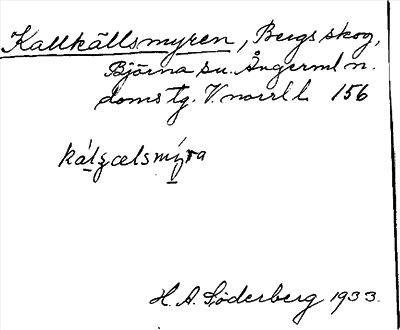 Kallkällsmyren, Bergs skog,
Björna sn. Ångerml n.
doms tg. V norrl l. 156
kálʒælsmýra
H. A. Söderberg 1933.